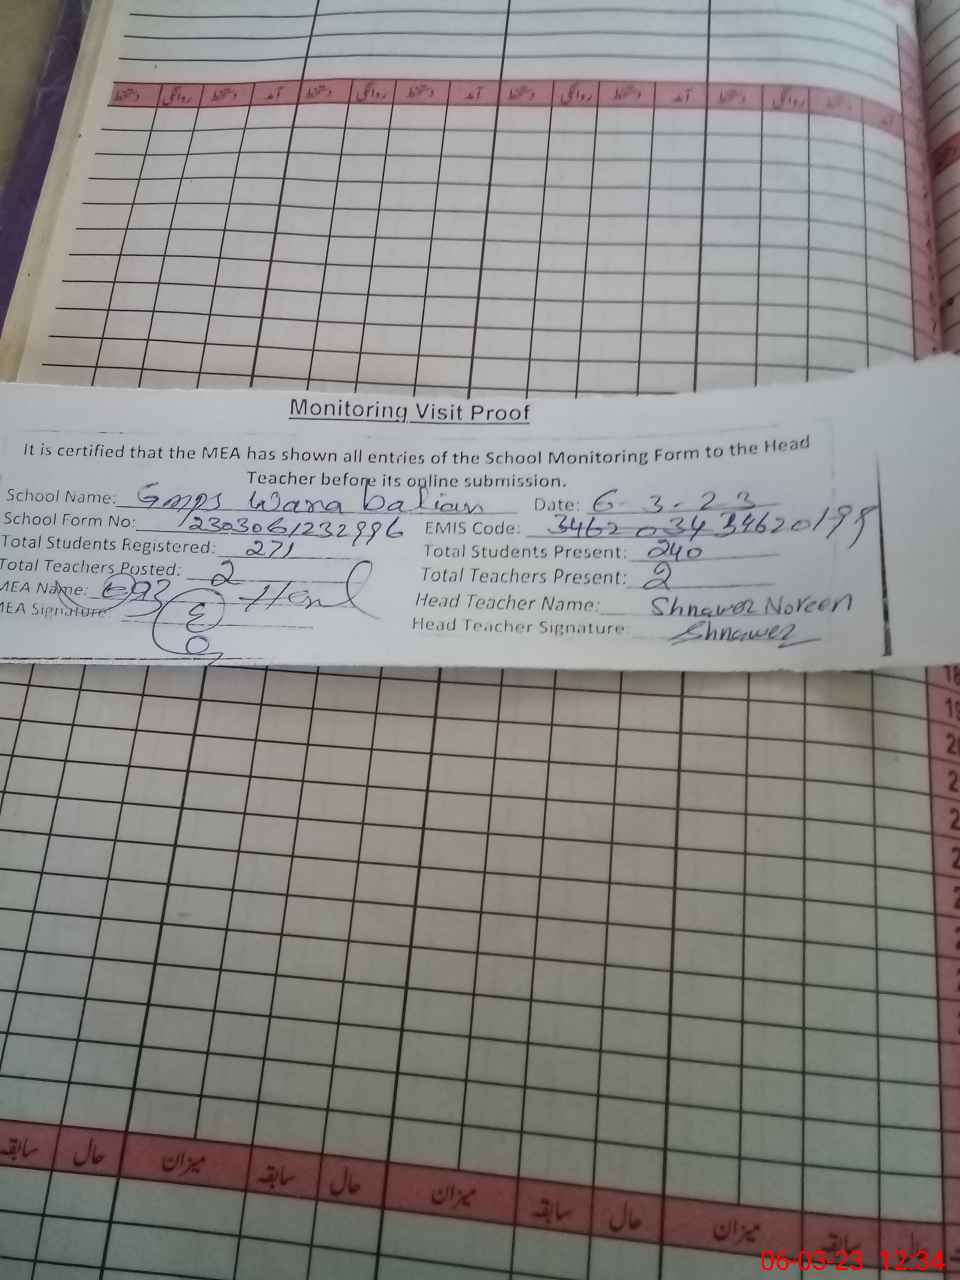 دستخط روانگی دستخط آمد دستخط روانگی دستخط آمد دستخط روانگی دستخط آمد دستخط روانگی دستخط آمد
Monitoring Visit Proof
It is certified that the MEA has shown all entries of the School Monitoring Form to the Head
Teacher before its online submission.
School Name: Gmps Wara Balian Date: 6-3-23
School Form No: EMIS Code:
Total Students Registered: 271 Total Students Present: 240
Total Teachers Posted: 2 Total Teachers Present: 2
MEA Name: Head Teacher Name: Shnawez Noreen
MEA Signature: Head Teacher Signature: Shnawez
18
19
سابقہ حال میزان سابقہ حال میزان سابقہ حال میزان سابقہ حال
06-03-23 12:34